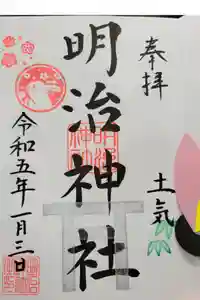 奉拝
土気
明治神社
令和五年一月三日